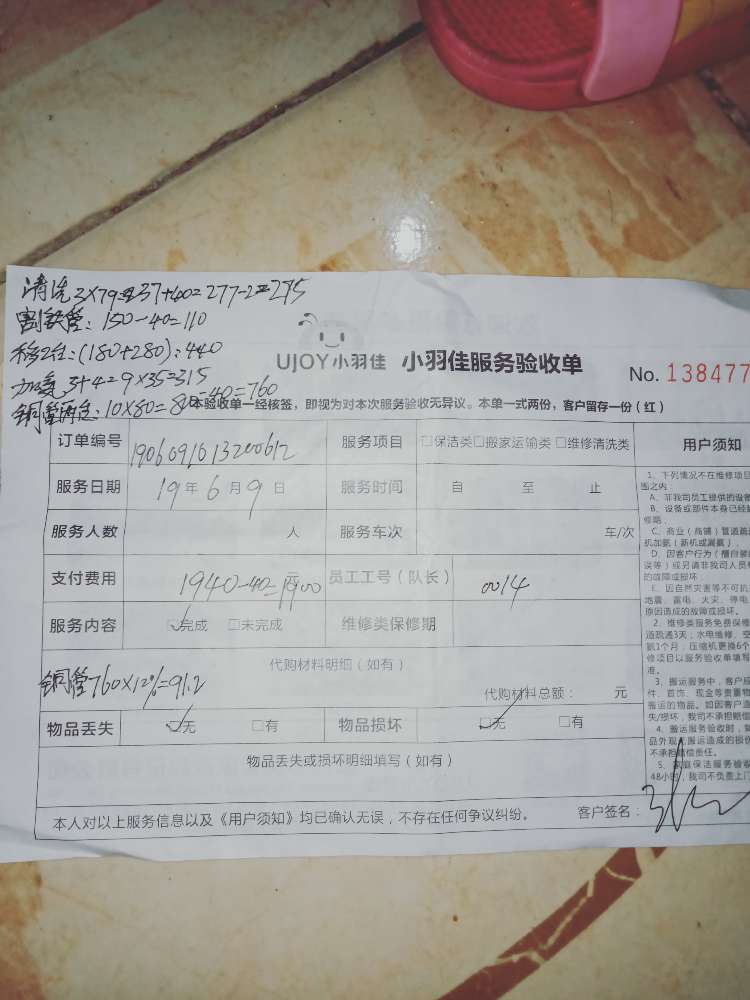 清洗3×79=237+40=277-2=275
割铁管：150-40=110
移2台：(180+280)：440
加氟 5+4=9×35=315
铜管两台：10×80=800-40=760
UJOY小羽佳 小羽佳服务验收单
No. 138477
本验收单一经核签，即视为对本次服务验收无异议。本单一式两份，客户留存一份（红）
订单编号 1906091013200612 服务项目 □保洁类□搬家运输类□维修清洗类 用户须知
服务日期 19年6月9日 服务时间 自 至 止
服务人数 人 服务车次 车/次
支付费用 1940-40=1900 元 员工工号（队长） 0014
服务内容 □完成 □未完成 维修类保修期
代购材料明细（如有）
铜管760×12%=91.2
代购材料总额： 元
物品丢失 □无 □有 物品损坏 □无 □有
物品丢失或损坏明细填写（如有）
本人对以上服务信息以及《用户须知》均已确认无误，不存在任何争议纠纷。 客户签名：
1、下列情况不在维修项目
围之内：
A、非我司员工提供的设备
B、设备或部件本身已经
修期
C、商业（商铺）管道疏
机加氟（新机或漏氟）.
D、因客户行为（擅自
误等）或另请非我司人员
的故障或损坏
E、因自然灾害等不可抗
地震、雷电、火灾、停电
原因造成的故障或损坏。
2、维修类服务免费保修
道疏通3天；水电维修、空
氟1个月；压缩机更换6个
修项目以服务验收单填写
准。
3、搬运服务中，客户
件、首饰、现金等贵重物
搬运的物品。如因客户造
失/损坏，我司不承担赔偿
4、搬运服务验收时，
品外观 搬运造成的损
不承担赔偿责任。
5、家庭保洁服务验收
48小时，我司不负责上门